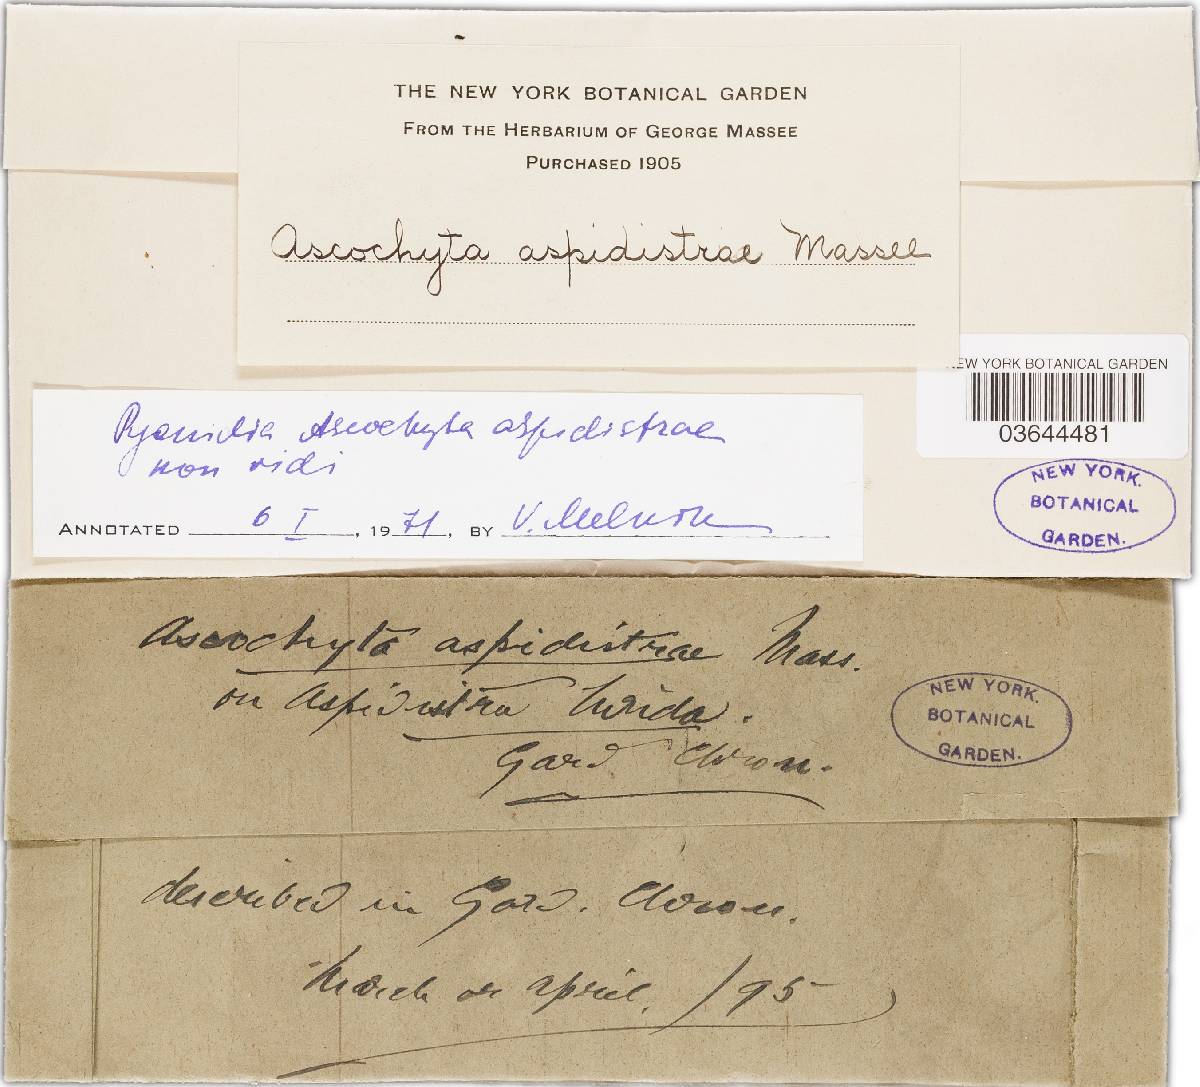 THE NEW YORK BOTANICAL GARDEN
FROM THE HERBARIUM OF GEORGE MASSEE
PURCHASED 1905
Ascochyta aspidistrae Massee
NEW YORK BOTANICAL GARDEN
03644481
Pycnidia Ascochyta aspidistrae
non vidi
ANNOTATED 6 I, 1971, BY V. Melnik
NEW YORK
BOTANICAL
GARDEN.
Ascochyta aspidistrae Mass.
on Aspidistra lurida.
Gard Chron.
NEW YORK
BOTANICAL
GARDEN.
described in Gard. Chron.
March or April. /95